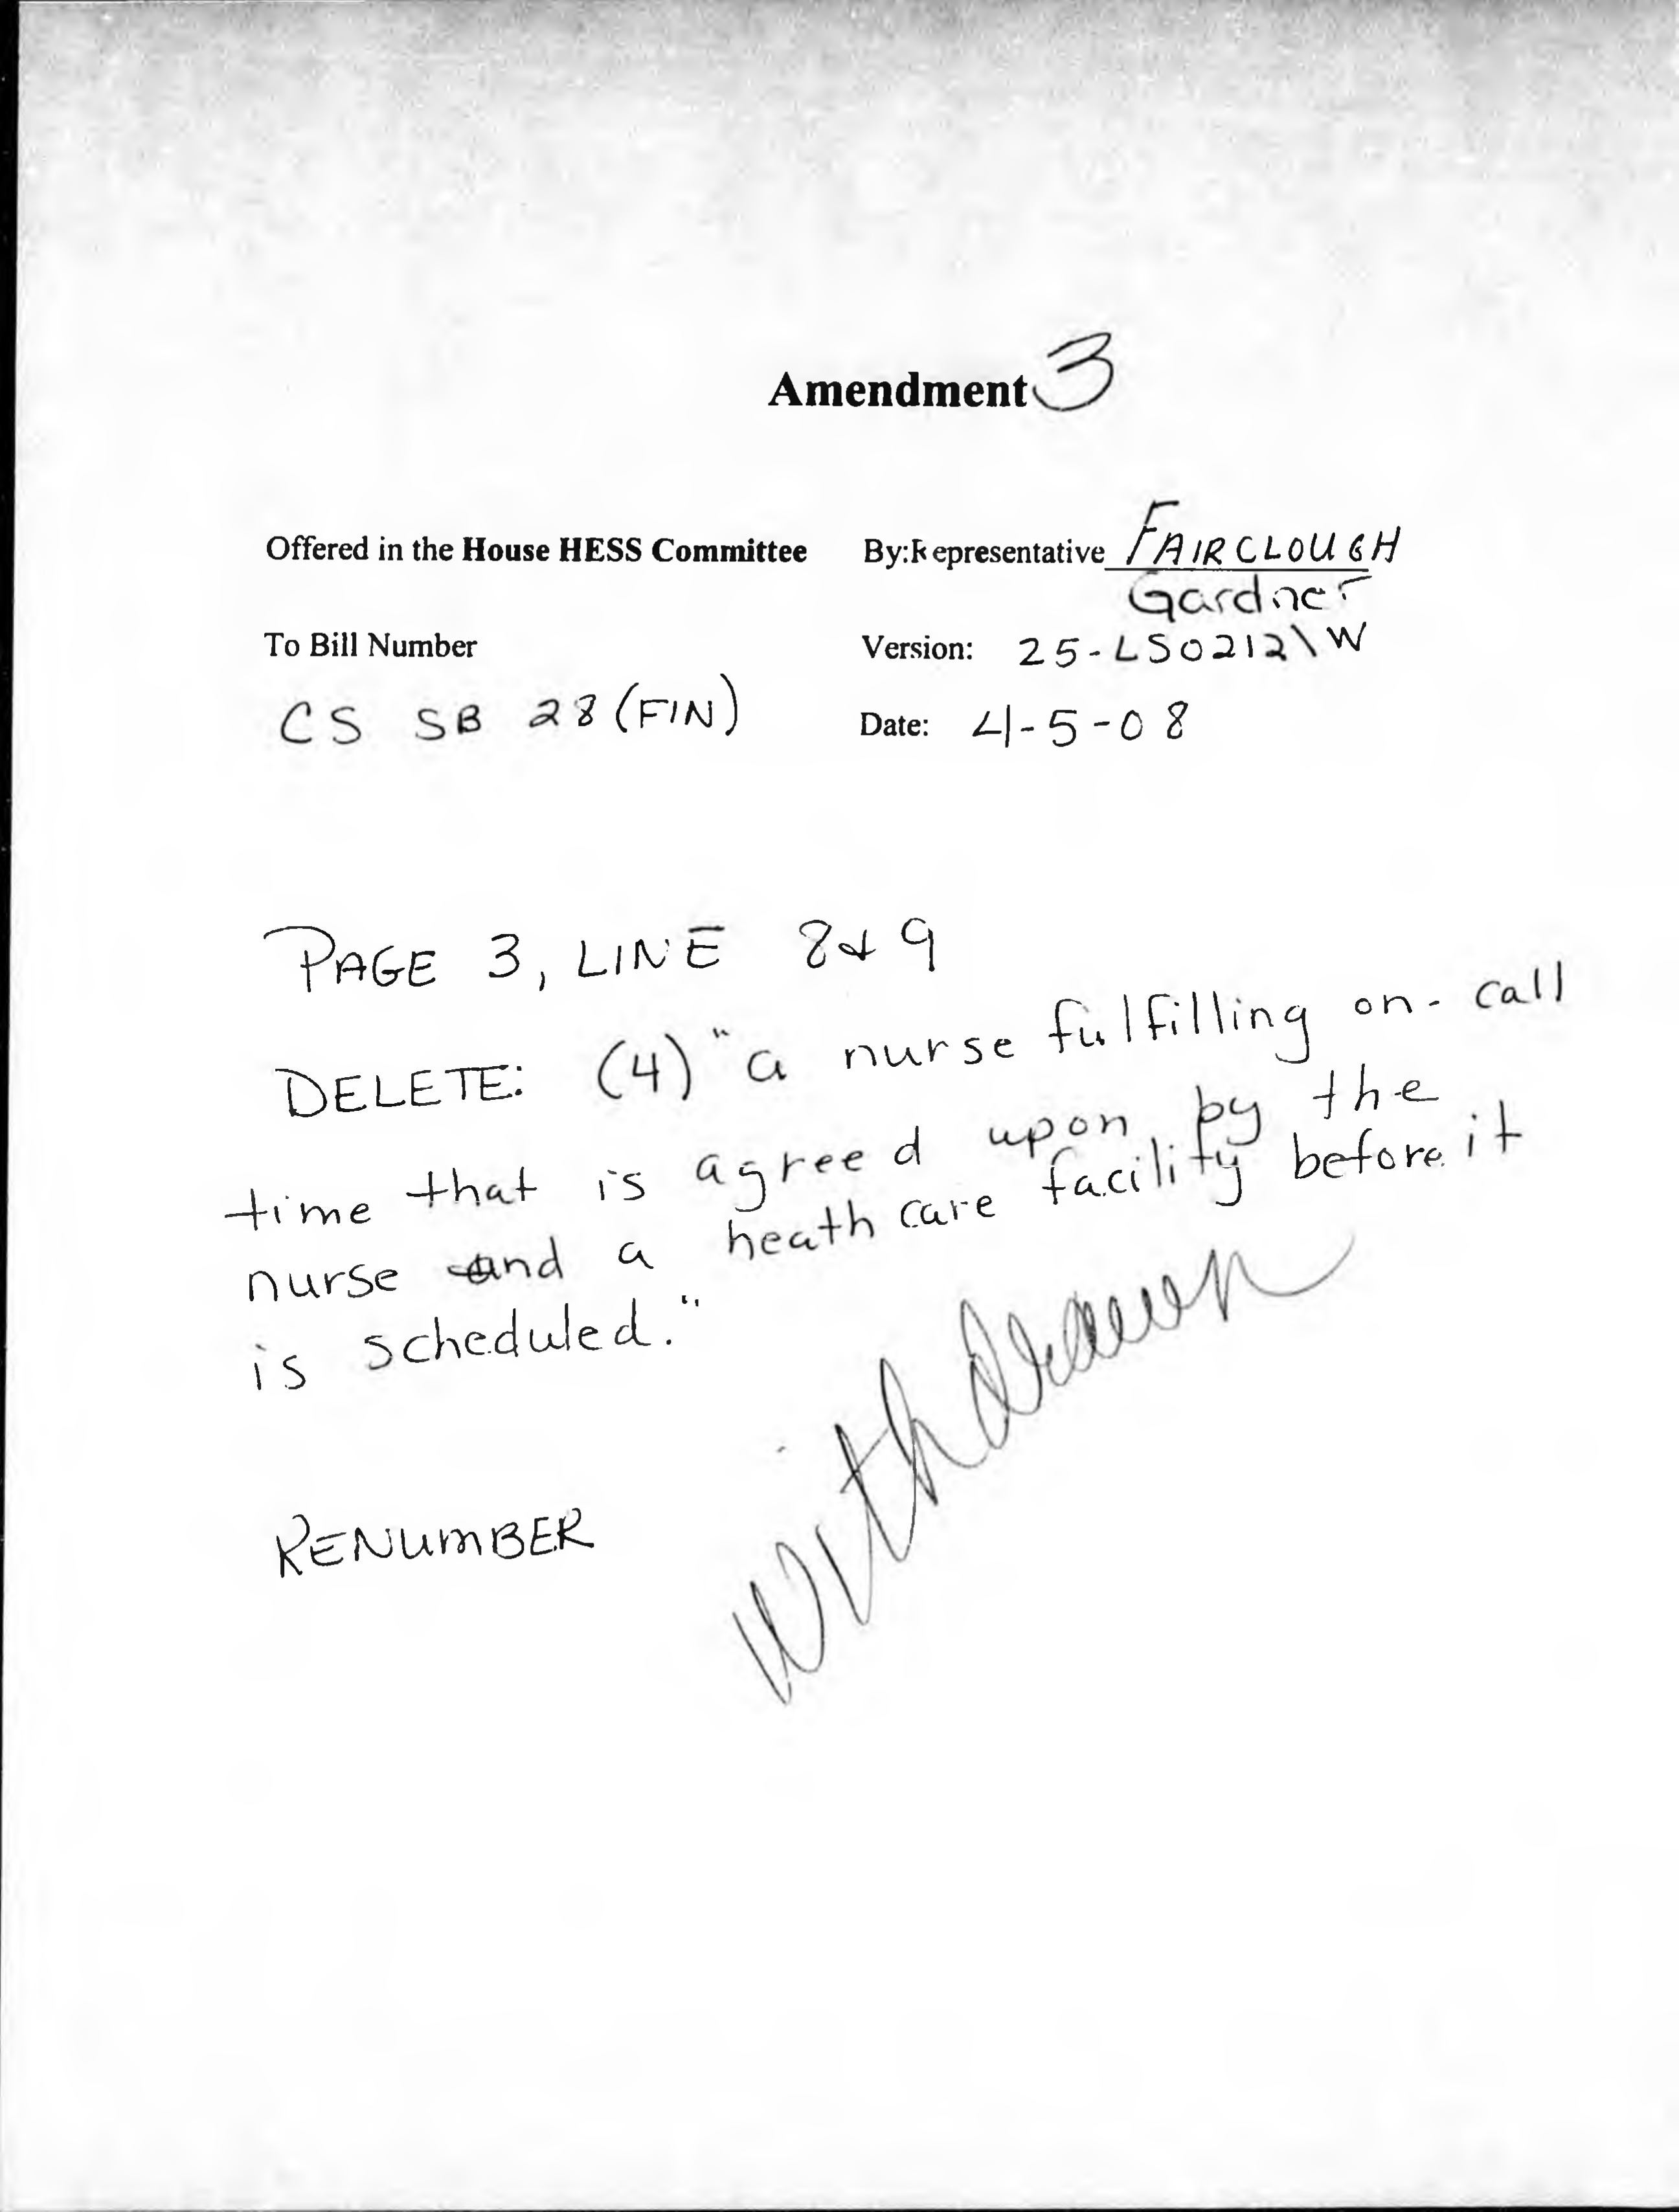 Amendment 3
Offered in the House HESS Committee By: Representative FAIRCLOUGH
Gardner
To Bill Number Version: 25-LS0212\W
CS SB 28 (FIN) Date: 4-5-08
PAGE 3, LINE 8 & 9
DELETE: (4) "a nurse fulfilling on-call
time that is agreed upon by the
nurse and a heath care facility before it
is scheduled."
withdrawn
RENUMBER